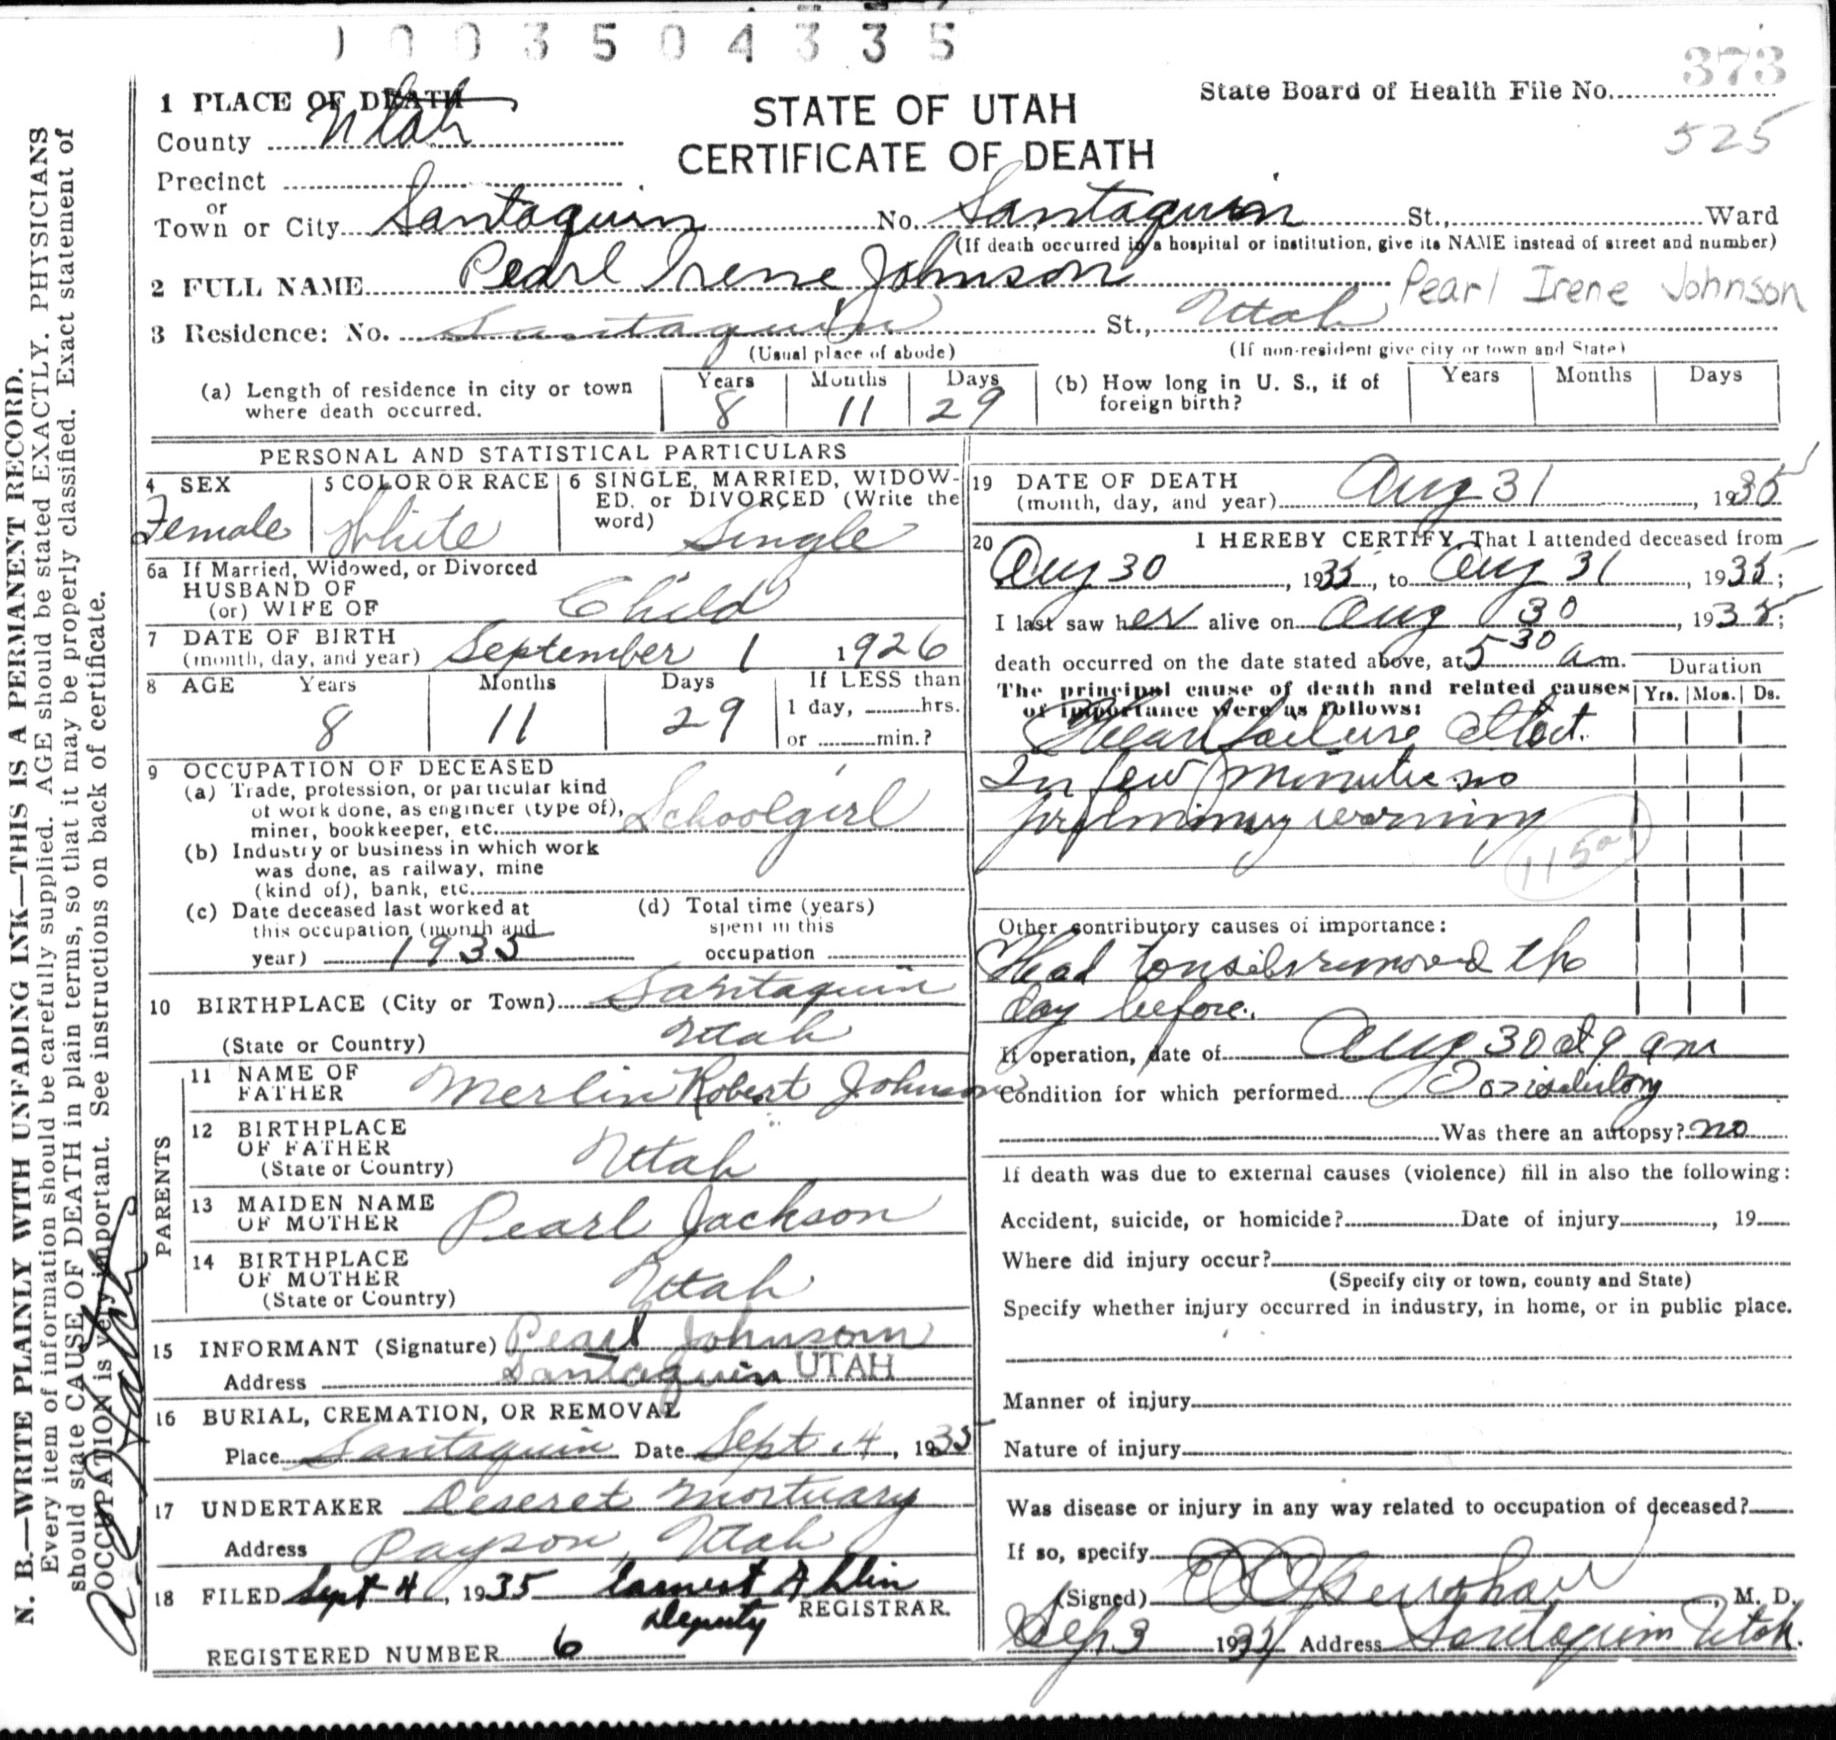 1003504335
373
State Board of Health File No.
525
STATE OF UTAH
CERTIFICATE OF DEATH
1 PLACE OF DEATH
County Utah
Precinct
or
Town or City Santaquin No. Santaquin St., Ward
(If death occurred in a hospital or institution, give its NAME instead of street and number)
2 FULL NAME Pearl Irene Johnson Pearl Irene Johnson
3 Residence: No. Santaquin St., Utah
(Usual place of abode) (If non-resident give city or town and State)
(a) Length of residence in city or town where death occurred. Years 8 Months 11 Days 29
(b) How long in U. S., if of foreign birth? Years Months Days
PERSONAL AND STATISTICAL PARTICULARS
4 SEX Female
5 COLOR OR RACE White
6 SINGLE, MARRIED, WIDOWED, or DIVORCED (Write the word) Single
6a If Married, Widowed, or Divorced
HUSBAND OF
(or) WIFE OF Child
7 DATE OF BIRTH
(month, day, and year) September 1 1926
8 AGE Years 8 Months 11 Days 29 If LESS than
1 day, hrs.
or min.?
9 OCCUPATION OF DECEASED
(a) Trade, profession, or particular kind
of work done, as engineer (type of),
miner, bookkeeper, etc. Schoolgirl
(b) Industry or business in which work
was done, as railway, mine
(kind of), bank, etc.
(c) Date deceased last worked at
this occupation (month and
year) 1935
(d) Total time (years)
spent in this
occupation
10 BIRTHPLACE (City or Town) Santaquin
(State or Country) Utah
PARENTS
11 NAME OF
FATHER Merlin Robert Johnson
12 BIRTHPLACE
OF FATHER
(State or Country) Utah
13 MAIDEN NAME
OF MOTHER Pearl Jackson
14 BIRTHPLACE
OF MOTHER
(State or Country) Utah
15 INFORMANT (Signature) Pearl Johnson
Address Santaquin UTAH
16 BURIAL, CREMATION, OR REMOVAL
Place Santaquin Date Sept. 4, 1935
17 UNDERTAKER Deseret Mortuary
Address Payson, Utah
18 FILED Sept 4, 1935 Earnest Ahlin
Deputy REGISTRAR.
REGISTERED NUMBER 6
19 DATE OF DEATH
(month, day, and year) Aug 31, 1935
20 I HEREBY CERTIFY, That I attended deceased from
Aug 30, 1935, to Aug 31, 1935;
I last saw her alive on Aug 30, 1935;
death occurred on the date stated above, at 5 30 a m.
Duration
Yrs. Mos. Ds.
The principal cause of death and related causes
of importance were as follows:
Heart failure
In few minutes no
preliminary warning
115a
Other contributory causes of importance:
Had tonsils removed the
day before.
If operation, date of Aug 30 at 9 am
Condition for which performed
Was there an autopsy? no
If death was due to external causes (violence) fill in also the following:
Accident, suicide, or homicide? Date of injury, 19
Where did injury occur?
(Specify city or town, county and State)
Specify whether injury occurred in industry, in home, or in public place.
Manner of injury
Nature of injury
Was disease or injury in any way related to occupation of deceased?
If so, specify
(Signed), M. D.
Sep 3 193 Address Santaquin Utah.
N. B.—WRITE PLAINLY WITH UNFADING INK—THIS IS A PERMANENT RECORD.
Every item of information should be carefully supplied. AGE should be stated EXACTLY. PHYSICIANS
should state CAUSE OF DEATH in plain terms, so that it may be properly classified. Exact statement of
OCCUPATION is very important. See instructions on back of certificate.